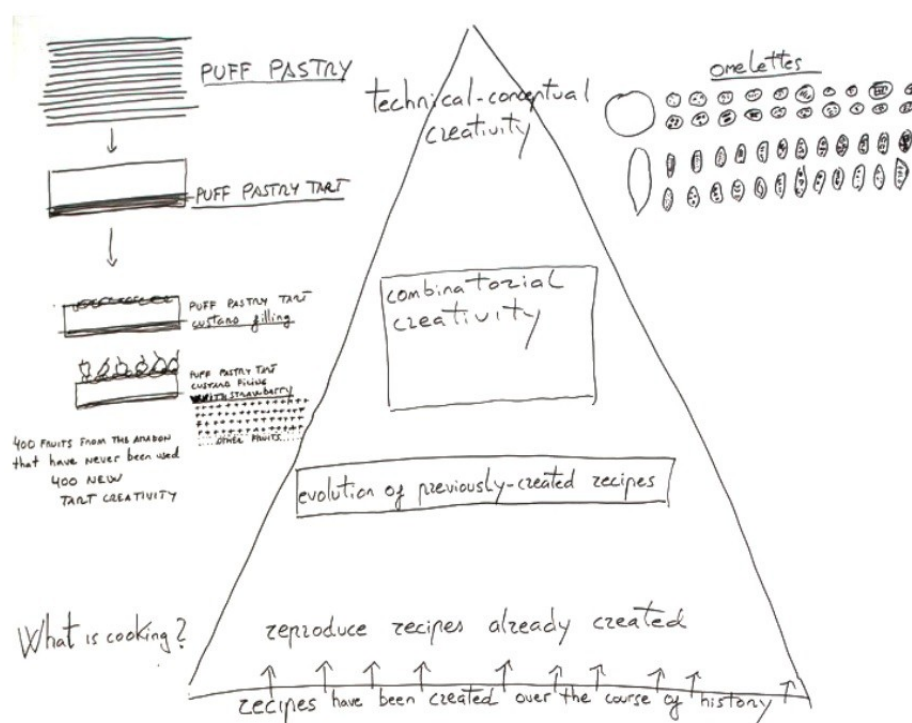 PUFF PASTRY
PUFF PASTRY TART
PUFF PASTRY TART
custard filling
PUFF PASTRY TART
CUSTARD FILING
WITH STRAWBARRY
OTHER FRUITS
400 FRUITS FROM THE AMAZON
that have never been used
400 NEW
TART CREATIVITY
What is cooking?
technical-conceptual
creativity
combinatorial
creativity
evolution of previously-created recipes
reproduce recipes already created
recipes have been created over the course of history
omelettes